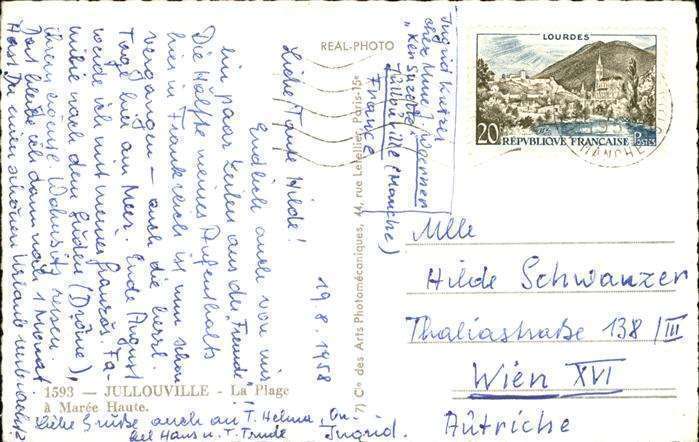 19.8.1958
Liebe Tante Hilde!
Endlich auch von mir
ein paar Zeilen aus der "Fremde"!
Die Hälfte meines Aufenthalts
hier in Frankreich ist nun schon
vergangen - auch die herrl.
Tage hier am Meer. Ende August
werde ich mit meiner französ. Fa-
milie nach dem Süden (Drôme),
ihrem Wohnsitz reisen.
Dort bleibe ich dann noch 1 Monat.
Hast Du einen schönen Urlaub verbracht?
Liebe Grüße auch an T. Helma, On-
kel Hans u. T. Trude Ingrid.
1593 — JULLOUVILLE - La Plage
à Marée Haute.
REAL-PHOTO
Cie des Arts Photomécaniques, 44, rue Letellier, Paris-15e
Ingrid
chez Mme J.
"Ker Suzette"
Jullouville (Manche)
France
LOURDES
20F
POSTES
REPVBLIQUE FRANÇAISE
MANCHE
Mlle
Hilde Schwanzer
Thaliastraße 138/III
Wien XVI
Autriche